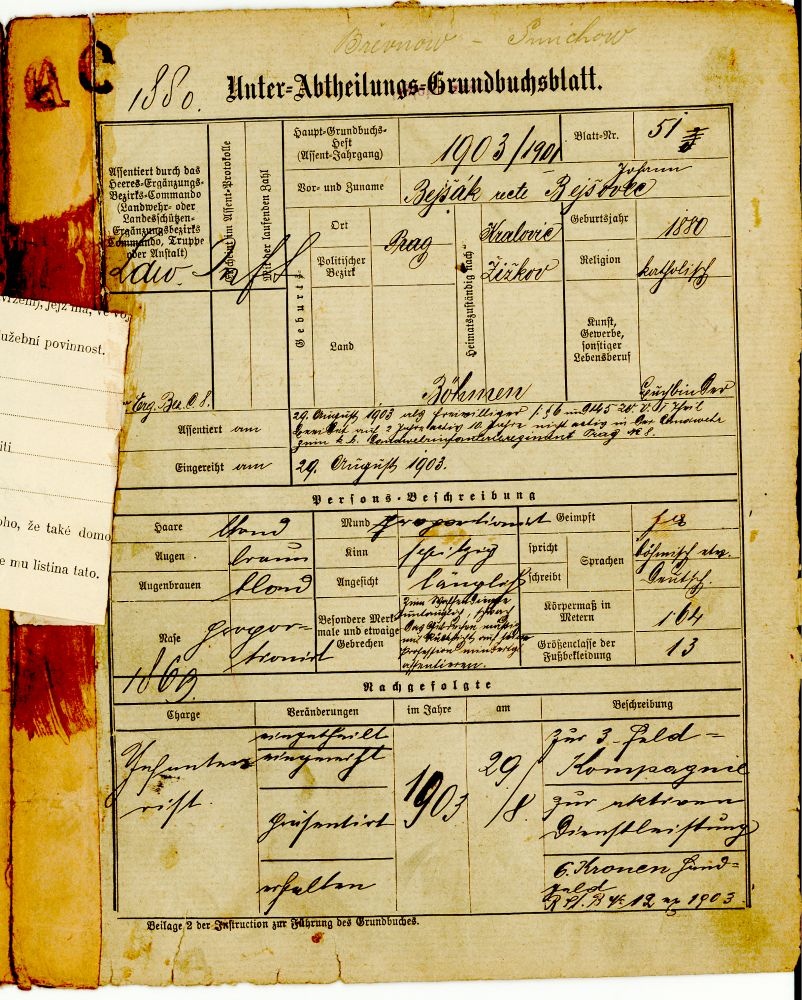 Břevnow - Smichow
1880.
Unter-Abtheilungs-Grundbuchsblatt.
Assentiert durch das Heeres-Ergänzungs-Bezirks-Commando (Landwehr- oder Landesschützen-Ergänzungsbezirks Commando, Truppe oder Anstalt)
Assent-Protokolle
Mit der laufenden Zahl
Haupt-Grundbuchs-Heft (Assent-Jahrgang)
1903/1901
Blatt-Nr.
51
Vor- und Zuname
Johann
Bejšák recte Bejšovec
Geburts
Ort
Prag
Politischer Bezirk
Land
Heimatszuständig nach
Kralovic
Žižkov
Böhmen
Geburtsjahr
1880
Religion
katholisch
Kunst, Gewerbe, sonstiger Lebensberuf
Buchbinder
Ldw.
Erg. Bez. C. 8.
Assentiert am
29. August 1903 als Freiwilliger
auf 2 Jahre activ 10 Jahre nicht activ in der Landwehr
zum k. k. Landwehrinfanterieregiment Prag № 8.
Eingereiht am
29. August 1903.
Persons-Beschreibung
Haare
blond
Mund
proportionirt
Geimpft
ja
Augen
braun
Kinn
spitzig
spricht
Sprachen
böhmisch etw.
Augenbrauen
blond
Angesicht
länglich
schreibt
Deutsch.
Nase
propor-
tionirt
Besondere Merkmale und etwaige Gebrechen
Zum Waffendienste
Profession
assentieren.
Körpermaß in Metern
164
Größenclasse der Fußbekleidung
13
1869.
Nachgefolgte
Charge
Veränderungen
im Jahre
am
Beschreibung
Infante-
rist.
eingetheilt
eingereiht
präsentirt
erhalten
1903
29/8.
zur 3. Feld=
Kompagnie
zur aktiven
Dienstleistung
6 Kronen Hand=
geld
12 ex 1903
Beilage 2 der Instruction zur Führung des Grundbuches.
jejž má, ve voj
služební povinnost.
iti
oho, že také domo
e mu listina tato.